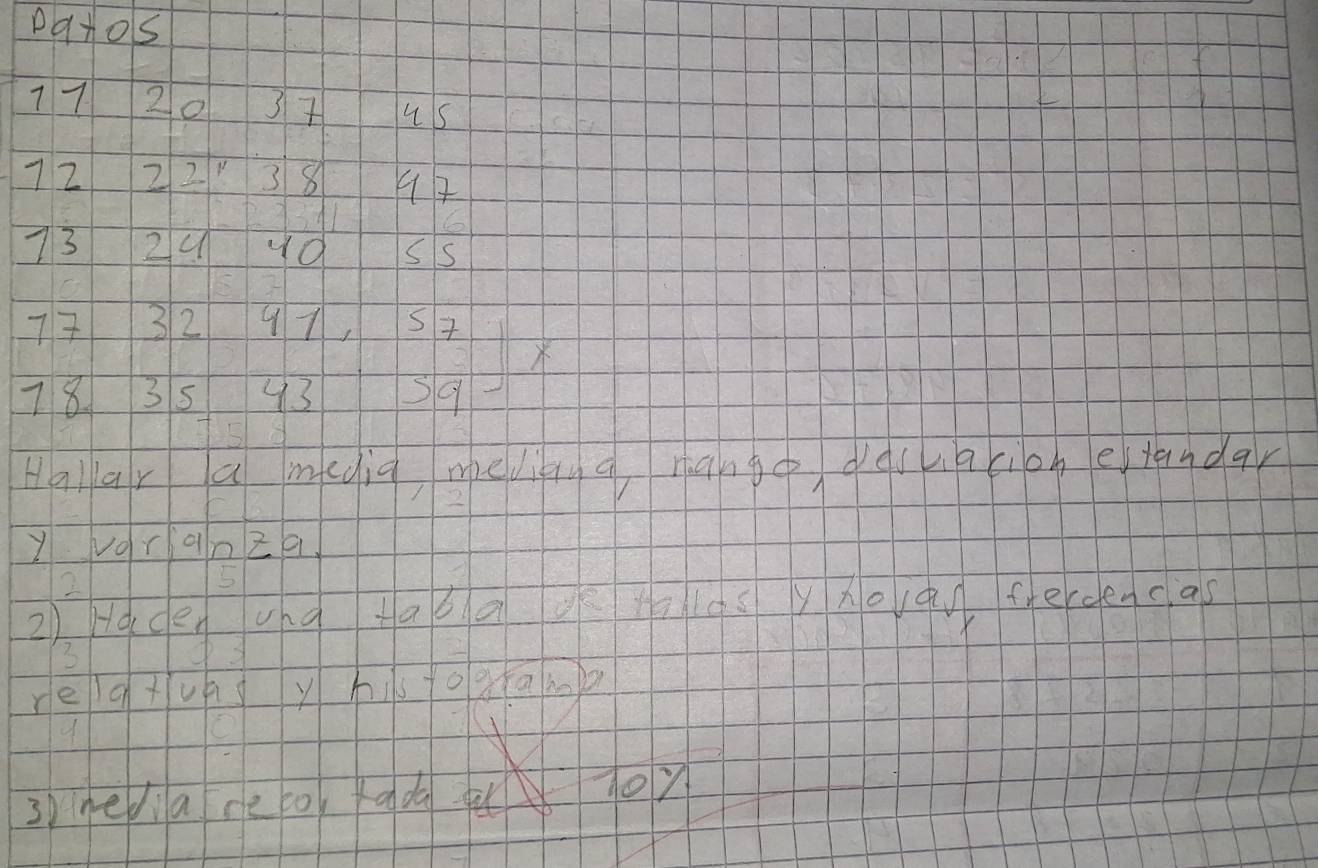 Datos
11 20 37 45
12 22 38 47
13 24 40 55
17 32 41, 57
18 35 43 59 x
Hallar la media, mediana, rango, desviacion estandar
y varianza.
2) Hacer una tabla de tallos y hojas, frecuencias
relativas y histograma
3) media recortada al 10%